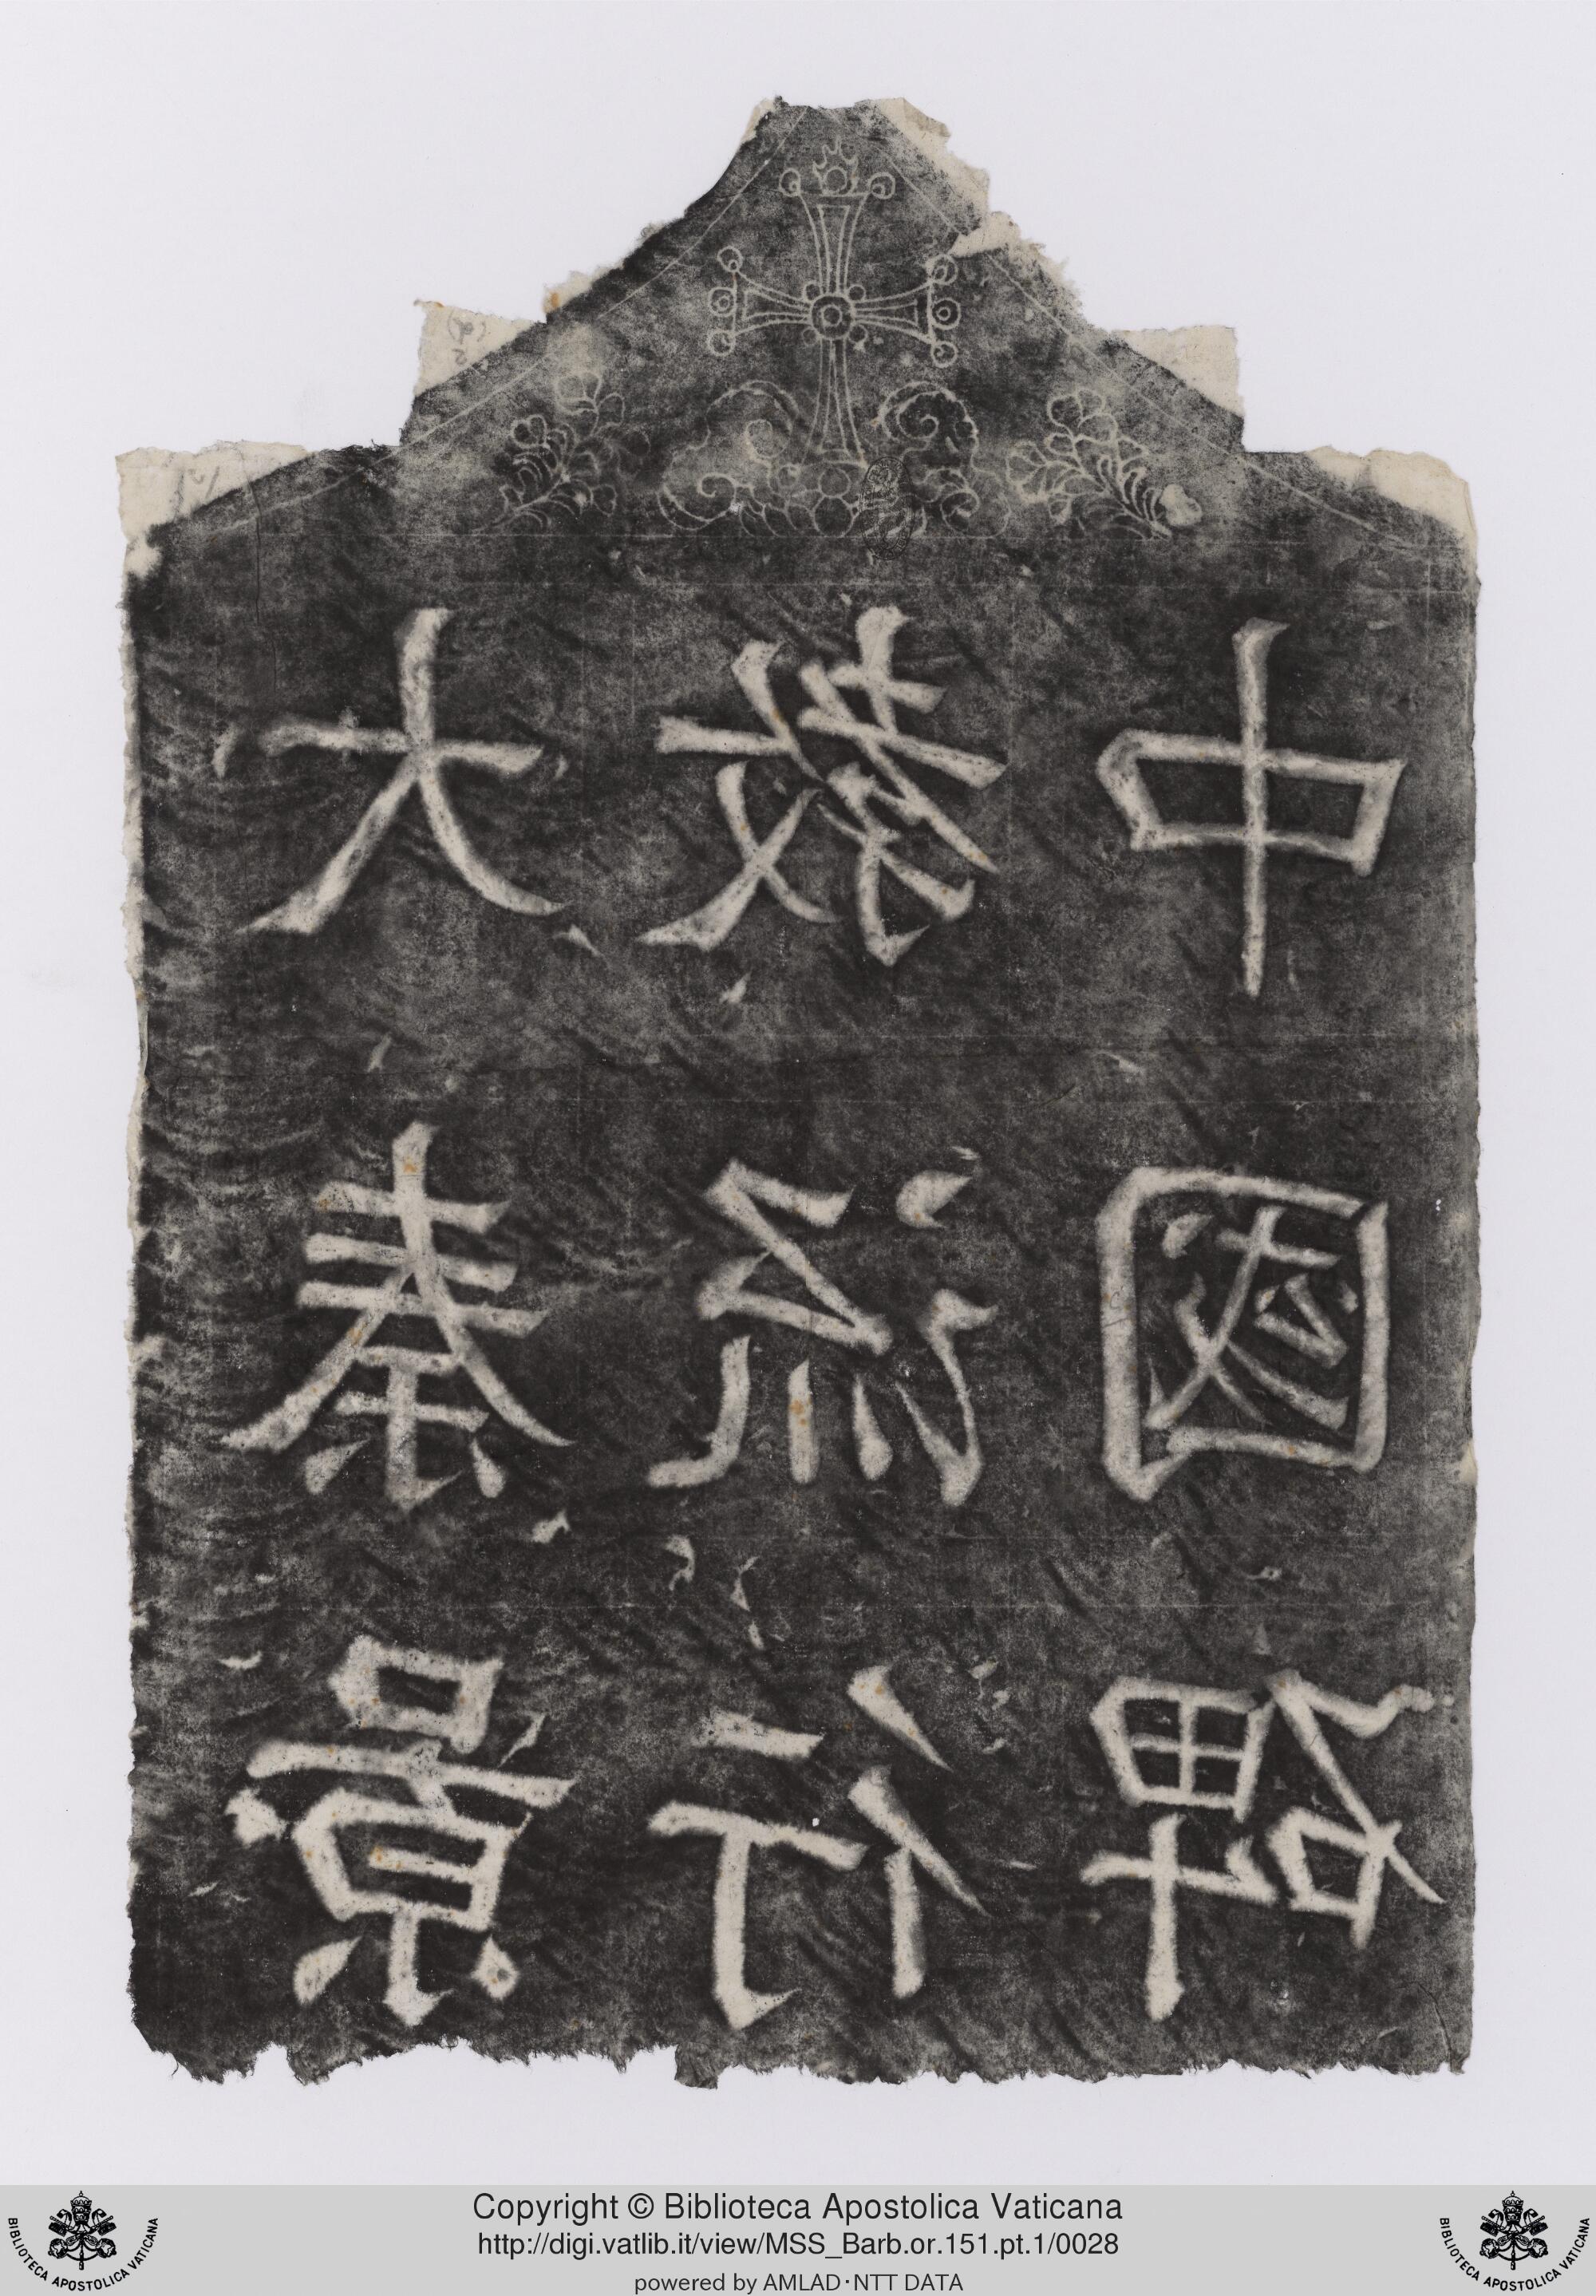 大秦景
教流行
中國碑
Copyright © Biblioteca Apostolica Vaticana
http://digi.vatlib.it/view/MSS_Barb.or.151.pt.1/0028
powered by AMLAD·NTT DATA
BIBLIOTECA APOSTOLICA VATICANA
BIBLIOTECA APOSTOLICA VATICANA